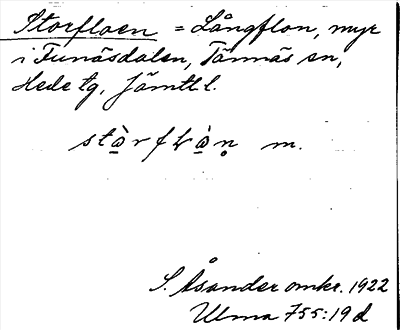 Storfloen = Långflon, myr
i Funäsdalen, Tännäs sn,
Hede tg, Jämtl l.
m.
S. Åsander omkr. 1922
Ulma 755:19 d